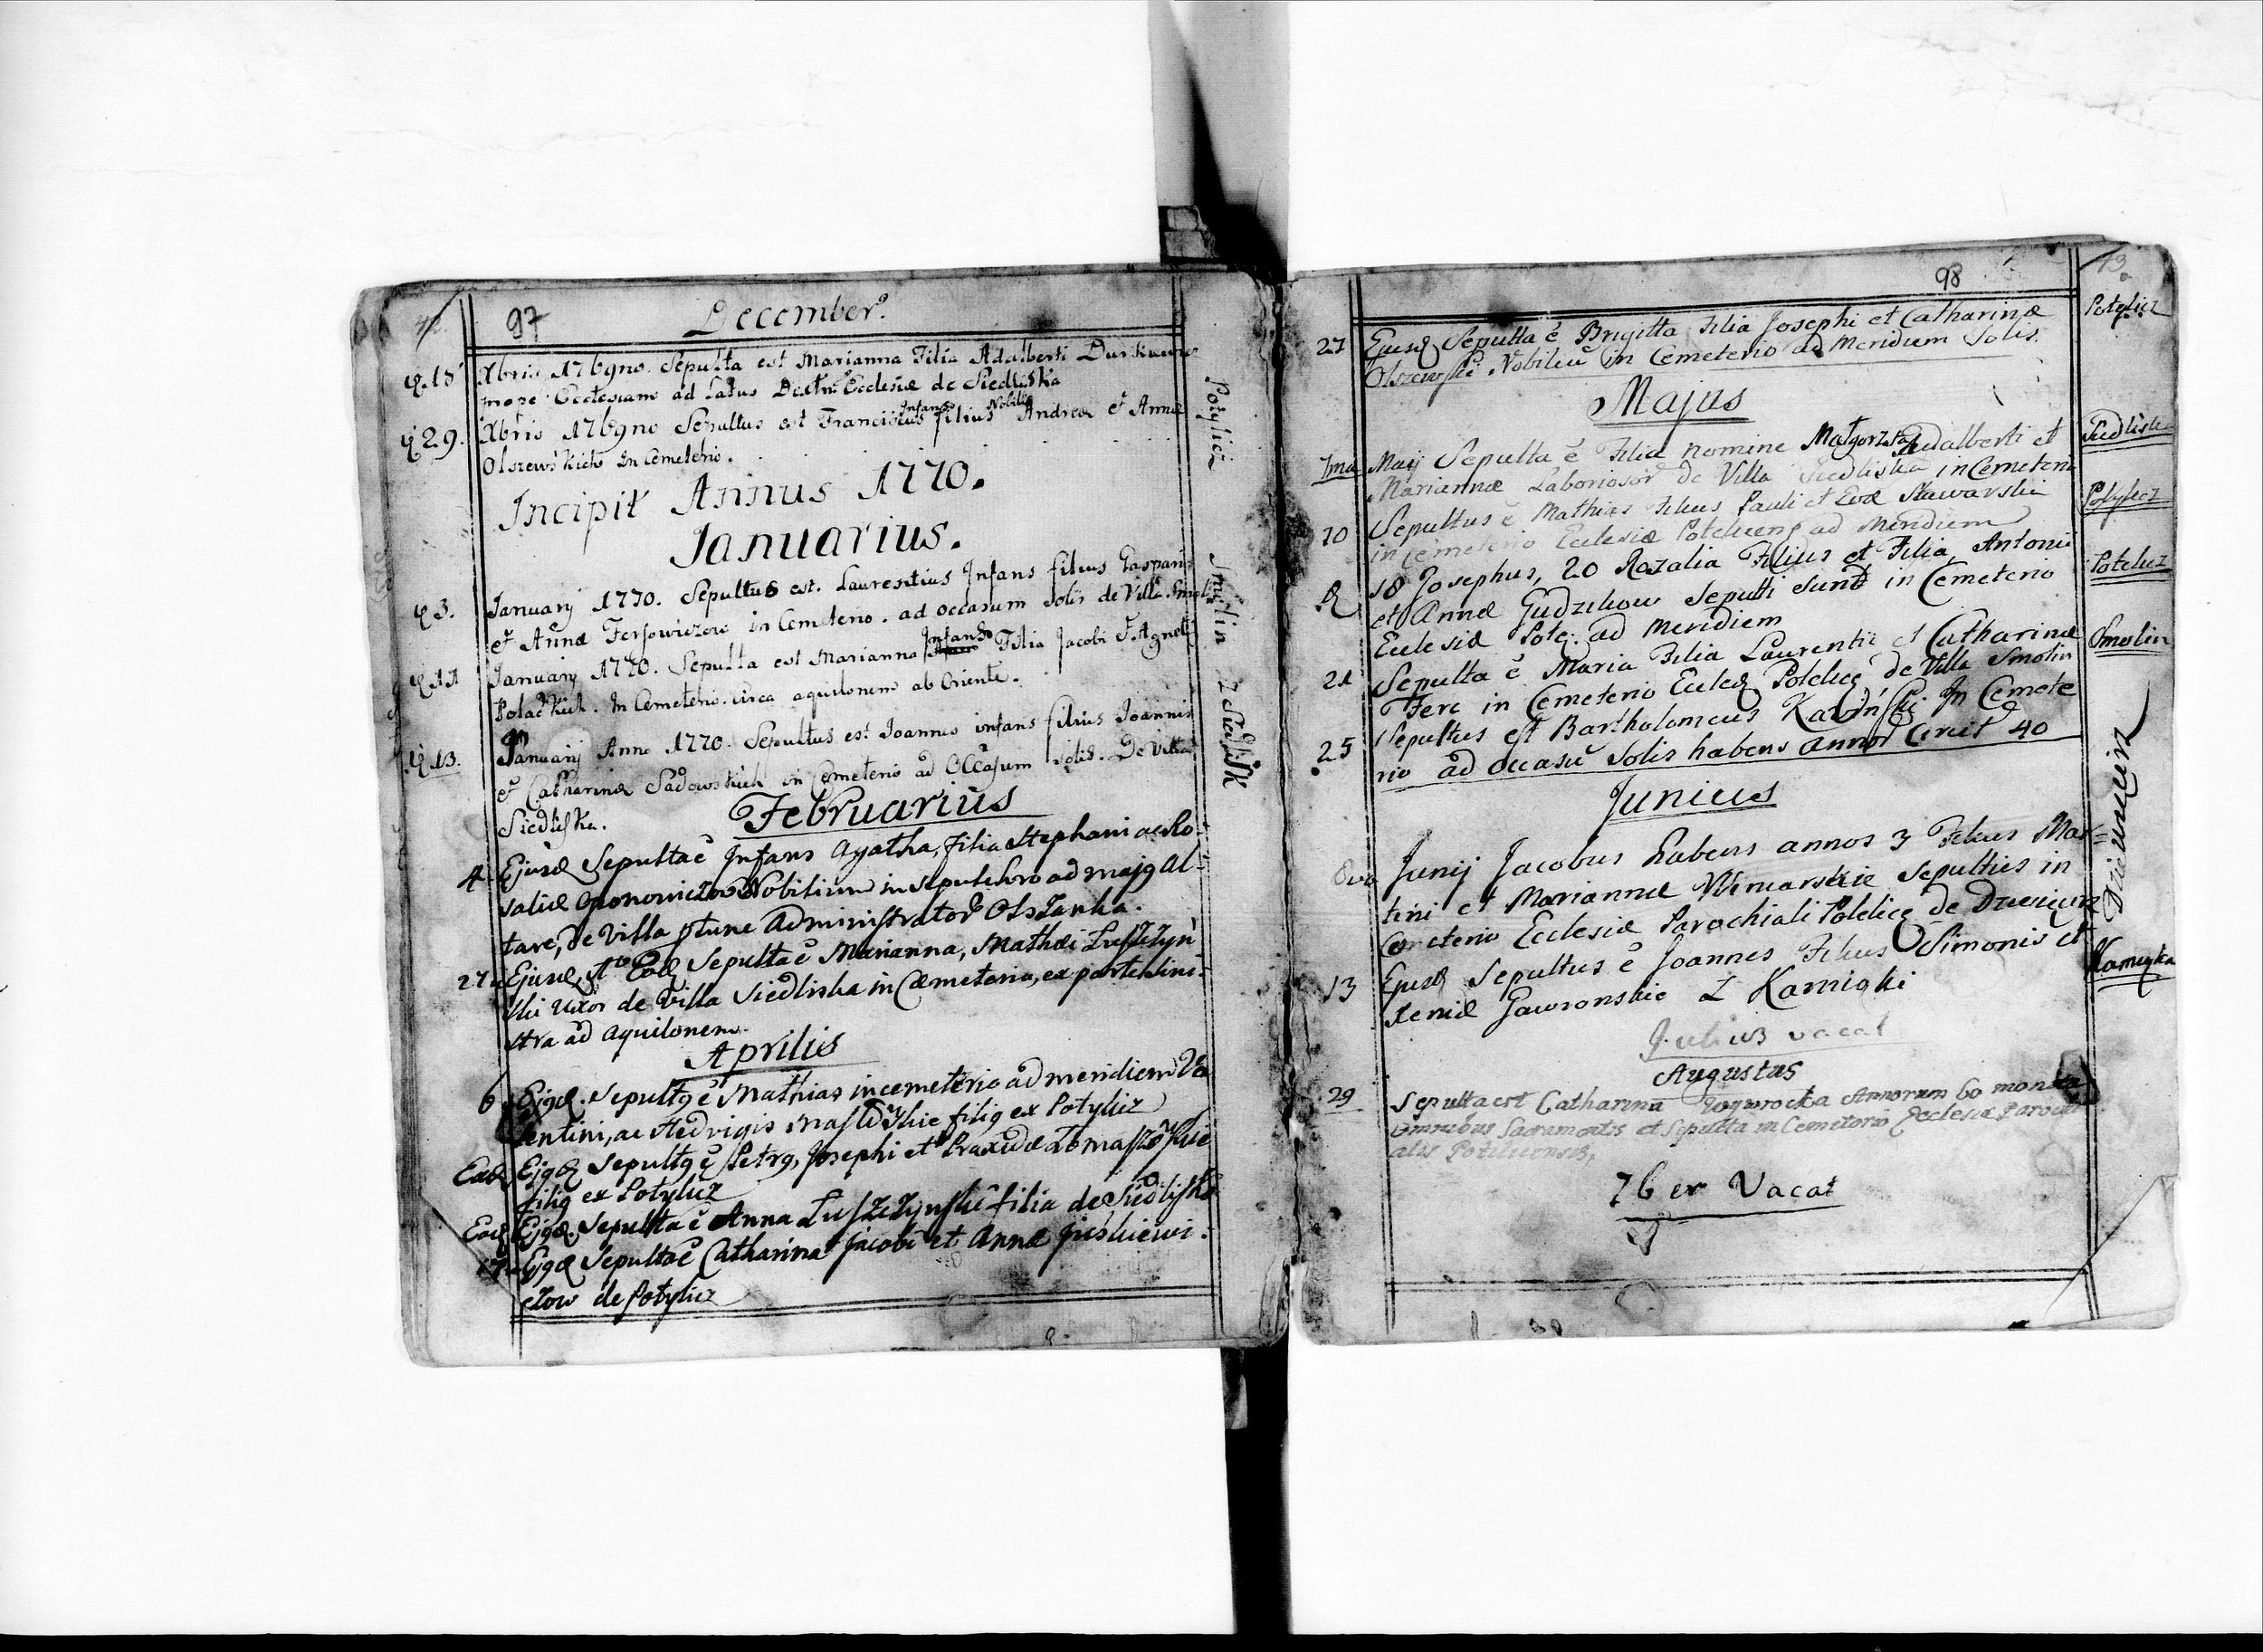 42.
97
December.
d. 15 Xbris 1769no. Sepulta est Marianna Filia Adalberti
more Ecclesiam ad Latus Dextr. Ecclesiæ de Siedliska
d 29. Xbris 1769no Sepultus est Franciscus Infans filius Nobilis Andreæ et Annæ
Olszewskich in Cemeterio.
Potylicz
Incipit Annus 1770.
Januarius.
d 3. January 1770. Sepultus est. Laurentius Infans filius Gaspari
et Annæ in Cemeterio. ad occasum solis de Villa Smolin
Smolin
d 11 January 1770. Sepulta est Marianna Infans Filia Jacobi et Agnetis
Polackich. In Cemeterio. circa aquilonem ab Oriente.
d 13. January Anno 1770. Sepultus est Joannes infans filius Joannis
et Catharinæ Sadowskich in Cemeterio ad Occasum solis. De Villa
Siedliska.
z Siedlisk
Februarius
4. Ejusd Sepulta ē Infans Agatha, filia Stephani ac Ro-
saliæ Nobilium in sepulchro ad majg Al-
tare, de Villa ptunc Administrator Olszanka.
27. Ejusd Sepulta ē Marianna, Mathæi Luszczyń
ski Uxor de Villa Siedliska in Cæmeterio, ex parte sini-
stra ad Aquilonem.
Aprilis
6 Ejgd. Sepultg ē Mathias in cemeterio ad meridiem Va
lentini, ac Hedvigis filig ex Potylicz
Ead Ejgd Sepultg ē Petrg, Josephi et Praxedæ
filig ex Potylicz
Ead Ejgd. Sepulta ē Anna Luszczynski filia de Siedliska
17. Ejgd Sepulta ē Catharina Jacobi et Annæ Juśkiewi-
czow de Potylicz
98
43.
27 Ejusd Sepulta ē Brigitta Filia Josephi et Catharinæ
Olszewski Nobiliū in Cemeterio ad Meridiem Solis.
Potylicz
Majus
7ma Maij Sepulta ē Filia nomine Małgorzata Adalberti et
Mariannæ Laboriosor de Villa Siedliska in Cemeterio
Siedliska
10 Sepultus ē Mathias Filius Pauli et Evæ
in Cemeterio Ecclesiæ ad Meridiem
Potylicz
d 18 Josephus, 20 Rozalia Filius et Filia, Antonii
et Annæ Gudzikow Sepulti Sunt in Cemeterio
Ecclesiæ Pote. ad Meridiem
Potelicz
21 Sepulta ē Maria Filia Laurentii et Catharinæ
Ferc in Cemeterio Eccles Potelicz de Villa Smolin
Smolin
25 Sepultus est Bartholomeus In Cemete
rio ad occasū Solis habens annor Circit 40
Junius
8va Junij Jacobus habens annos 3 Filius Mar-
tini et Mariannæ Sepultus in
Cemeterio Ecclesiæ Parochiali Potelicz de
13 Ejusd Sepultus ē Joannes Filius Simonis et
Xeniæ Gawronskie Z Kamionki
Julius vacat
Augustus
29 Sepulta est Catharina Annorum 60
Omnibus Sacramentis et Sepulta in Cemeterio Ecclesiæ Parochi
alis
7b er Vacat